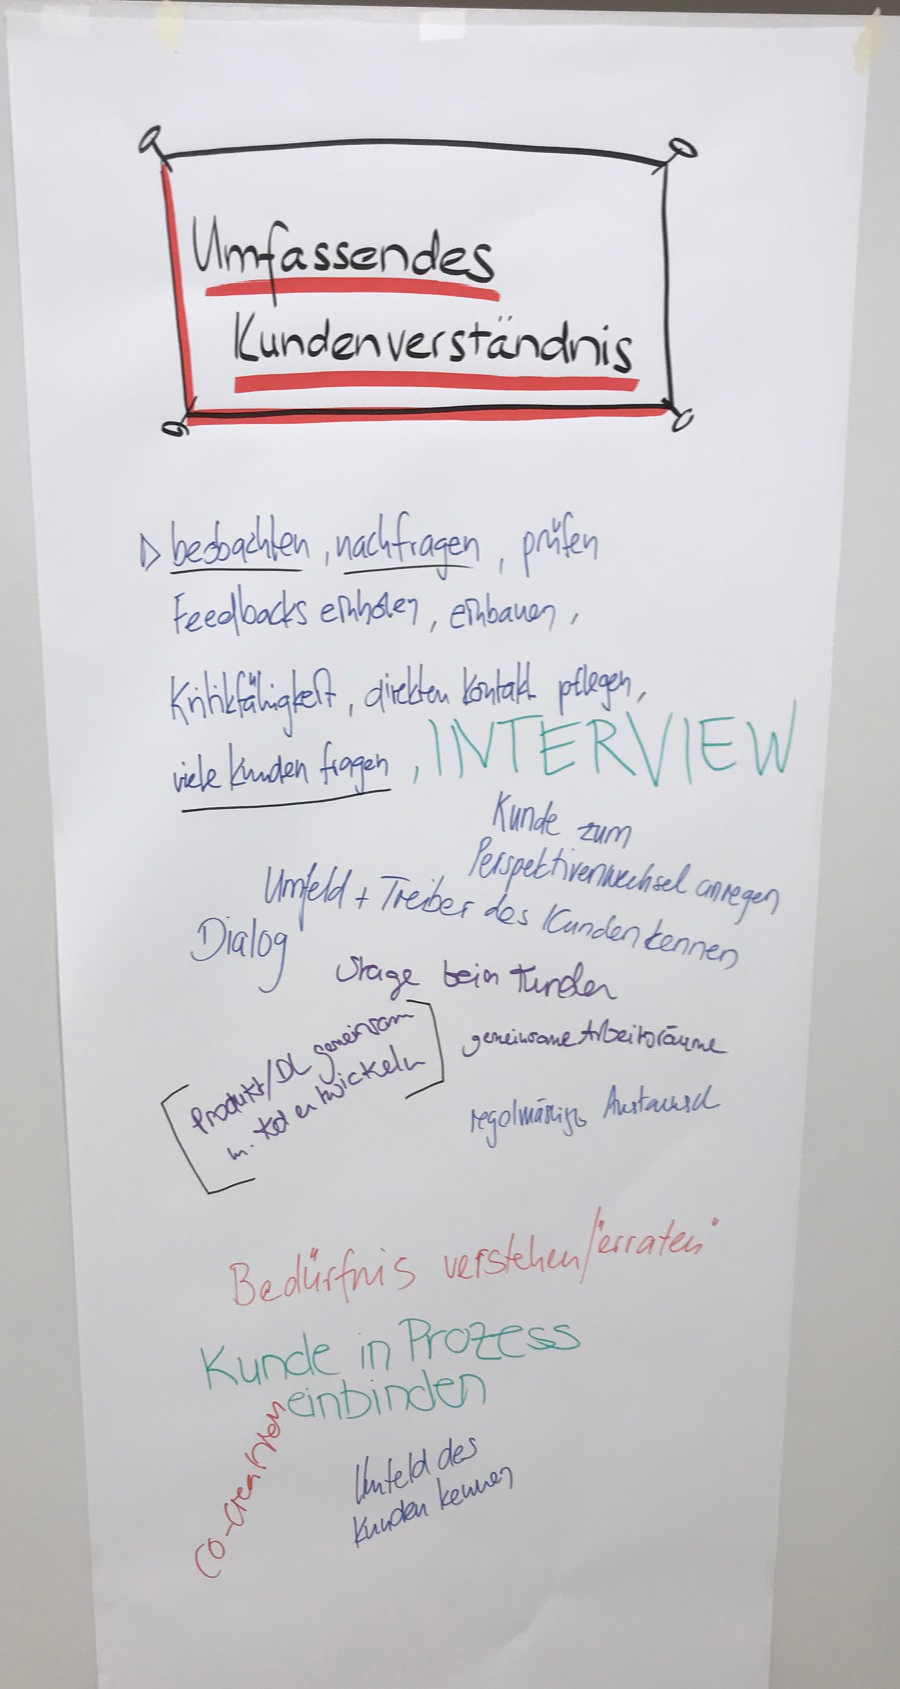 Umfassendes
Kundenverständnis
beobachten, nachfragen, prüfen
Feedbacks einholen, einbauen,
Kritikfähigkeit, direkten Kontakt pflegen,
viele Kunden fragen, INTERVIEW
Kunde zum
Perspektivenwechsel anregen
Umfeld + Treiber des Kunden kennen
Dialog
Stage beim Kunden
Produkt/DL gemeinsam
m. Kd entwickeln
gemeinsame Arbeitsräume
regelmässig Austausch
Bedürfnis verstehen/"erraten"
Kunde in Prozess
einbinden
Co-Creation
Umfeld des
Kunden kennen